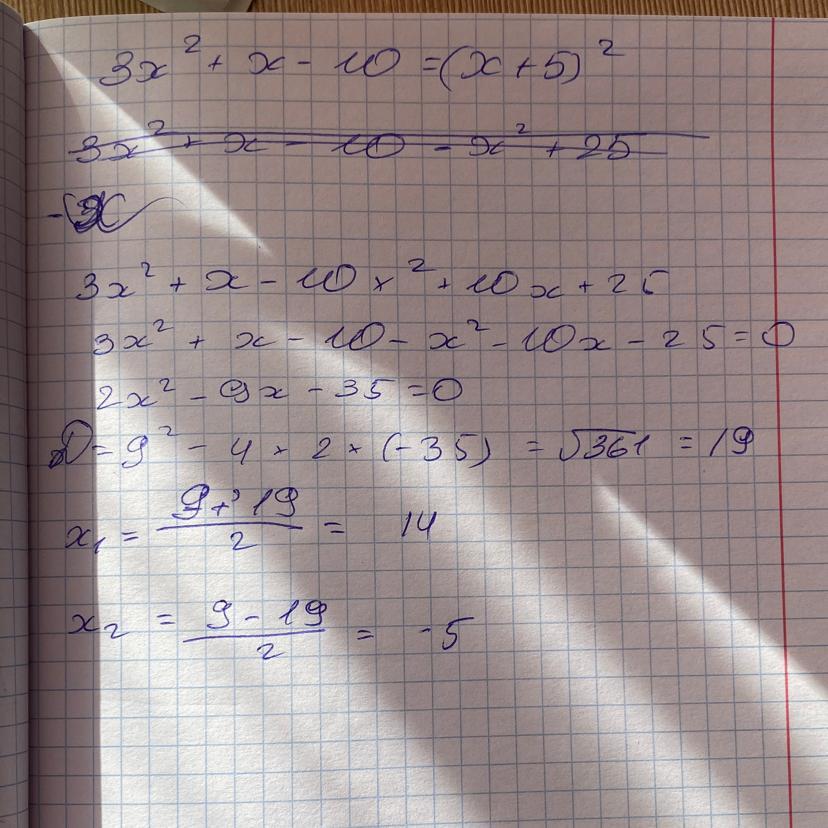 3x² + x - 10 = (x + 5)²
3x² + x - 10 - x² + 25
3x² + x - 10 x² + 10x + 25
3x² + x - 10 - x² - 10x - 25 = 0
2x² - 9x - 35 = 0
D = 9² - 4 × 2 × (-35) = √361 = 19
x₁ = (9 + 19)/2 = 14
x₂ = (9 - 19)/2 = -5